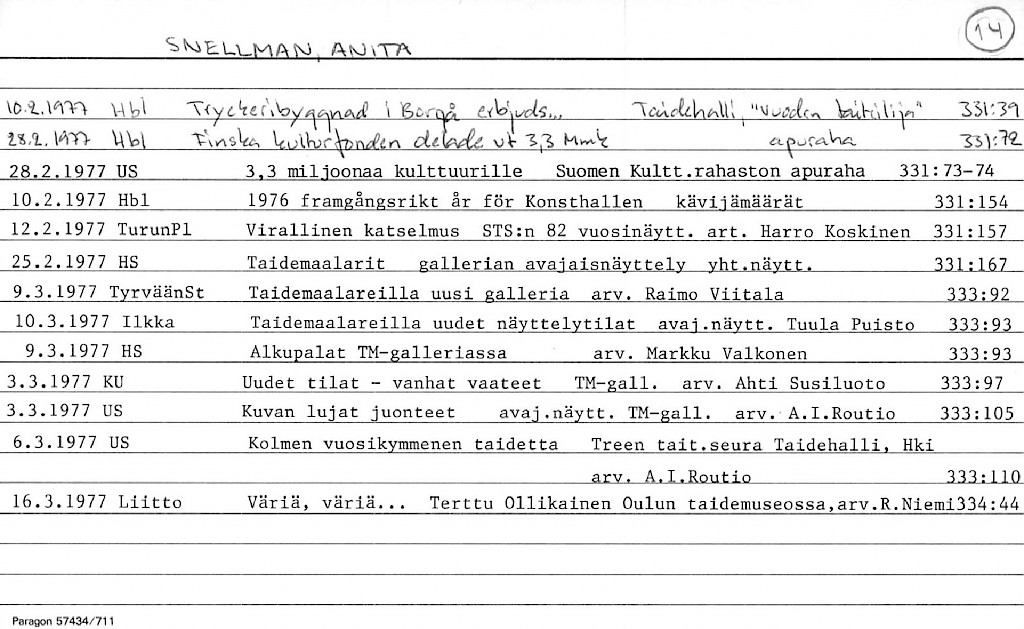 14
SNELLMAN, ANITA
10.2.1977 Hbl Tryckeribyggnad i Borgå erbjuds... Taidehalli, "vuoden taiteilija" 331:39
28.2.1977 Hbl Finska kulturfonden delade ut 3,3 Mmk apuraha 331:72
28.2.1977 US 3,3 miljoonaa kulttuurille Suomen Kultt.rahaston apuraha 331:73-74
10.2.1977 Hbl 1976 framgångsrikt år för Konsthallen kävijämäärät 331:154
12.2.1977 TurunPl Virallinen katselmus STS:n 82 vuosinäytt. art. Harro Koskinen 331:157
25.2.1977 HS Taidemaalarit gallerian avajaisnäyttely yht.näytt. 331:167
9.3.1977 TyrväänSt Taidemaalareilla uusi galleria arv. Raimo Viitala 333:92
10.3.1977 Ilkka Taidemaalareilla uudet näyttelytilat avaj.näytt. Tuula Puisto 333:93
9.3.1977 HS Alkupalat TM-galleriassa arv. Markku Valkonen 333:93
3.3.1977 KU Uudet tilat - vanhat vaateet TM-gall. arv. Ahti Susiluoto 333:97
3.3.1977 US Kuvan lujat juonteet avaj.näytt. TM-gall. arv. A.I.Routio 333:105
6.3.1977 US Kolmen vuosikymmenen taidetta Treen tait.seura Taidehalli, Hki
arv. A.I.Routio 333:110
16.3.1977 Liitto Väriä, väriä... Terttu Ollikainen Oulun taidemuseossa,arv.R.Niemi334:44
Paragon 57434/711